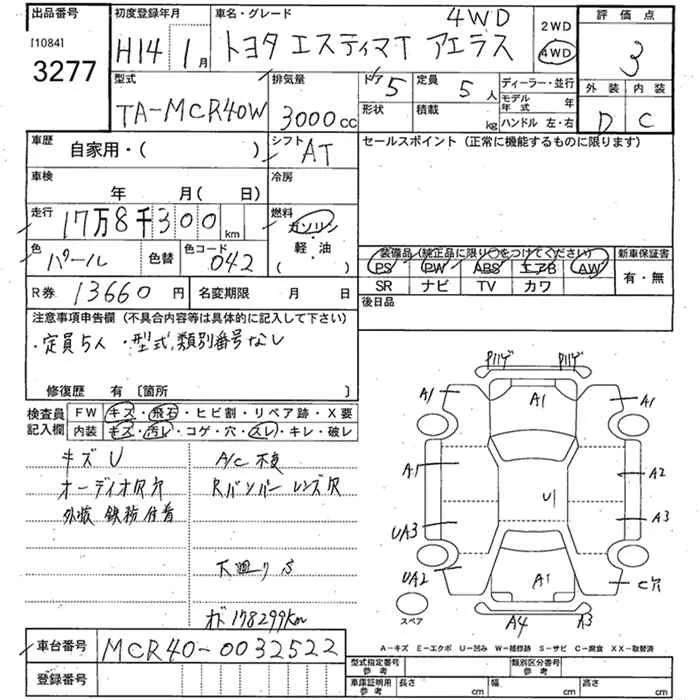 出品番号 初度登録年月 車名・グレード 4WD 2WD 評価点
[1084] 3277 H14 1月 トヨタ エスティマT アエラス 4WD 3
型式 排気量 ドア 5 定員 5人 ディーラー・並行 外装 内装
TA-MCR40W 3000cc 形状 積載 kg モデル年式 年 D C
ハンドル 左・右
車歴 自家用・( ) シフト AT セールスポイント (正常に機能するものに限ります)
車検 年 月(日) 冷房
走行 17万8千300km 燃料 ガソリン
軽・油
( )
色 パール 色替 色コード 042 装備品 (純正品に限り○をつけてください) 新車保証書
PS PW ABS エアB AW 有・無
SR ナビ TV カワ
R券 13660円 名変期限 月 日 後日品
注意事項申告欄 (不具合内容等は具体的に記入して下さい)
・定員5人 ・型式,類別番号なし
修復歴 有 [箇所 ]
検査員記入欄 FW キズ・飛石・ヒビ割・リペア跡・X要
内装 キズ・汚レ・コゲ・穴・スレ・キレ・破レ
キズU A/C 不良
オーディオ穴 Rバンパー レンズ穴
外装
下廻りS
オド178299km
車台番号 MCR40-0032522
登録番号
A1 A1 A1
A1 A2
U1
UA3 A3
UA2 A1 C穴
スペア A4 A3
A-キズ E-エクボ U-凹み W-補修跡 S-サビ C-腐食 XX-取替済
型式指定番号 参考 類別区分番号 参考
車庫証明用 参考 長さ cm 幅 cm 高さ cm